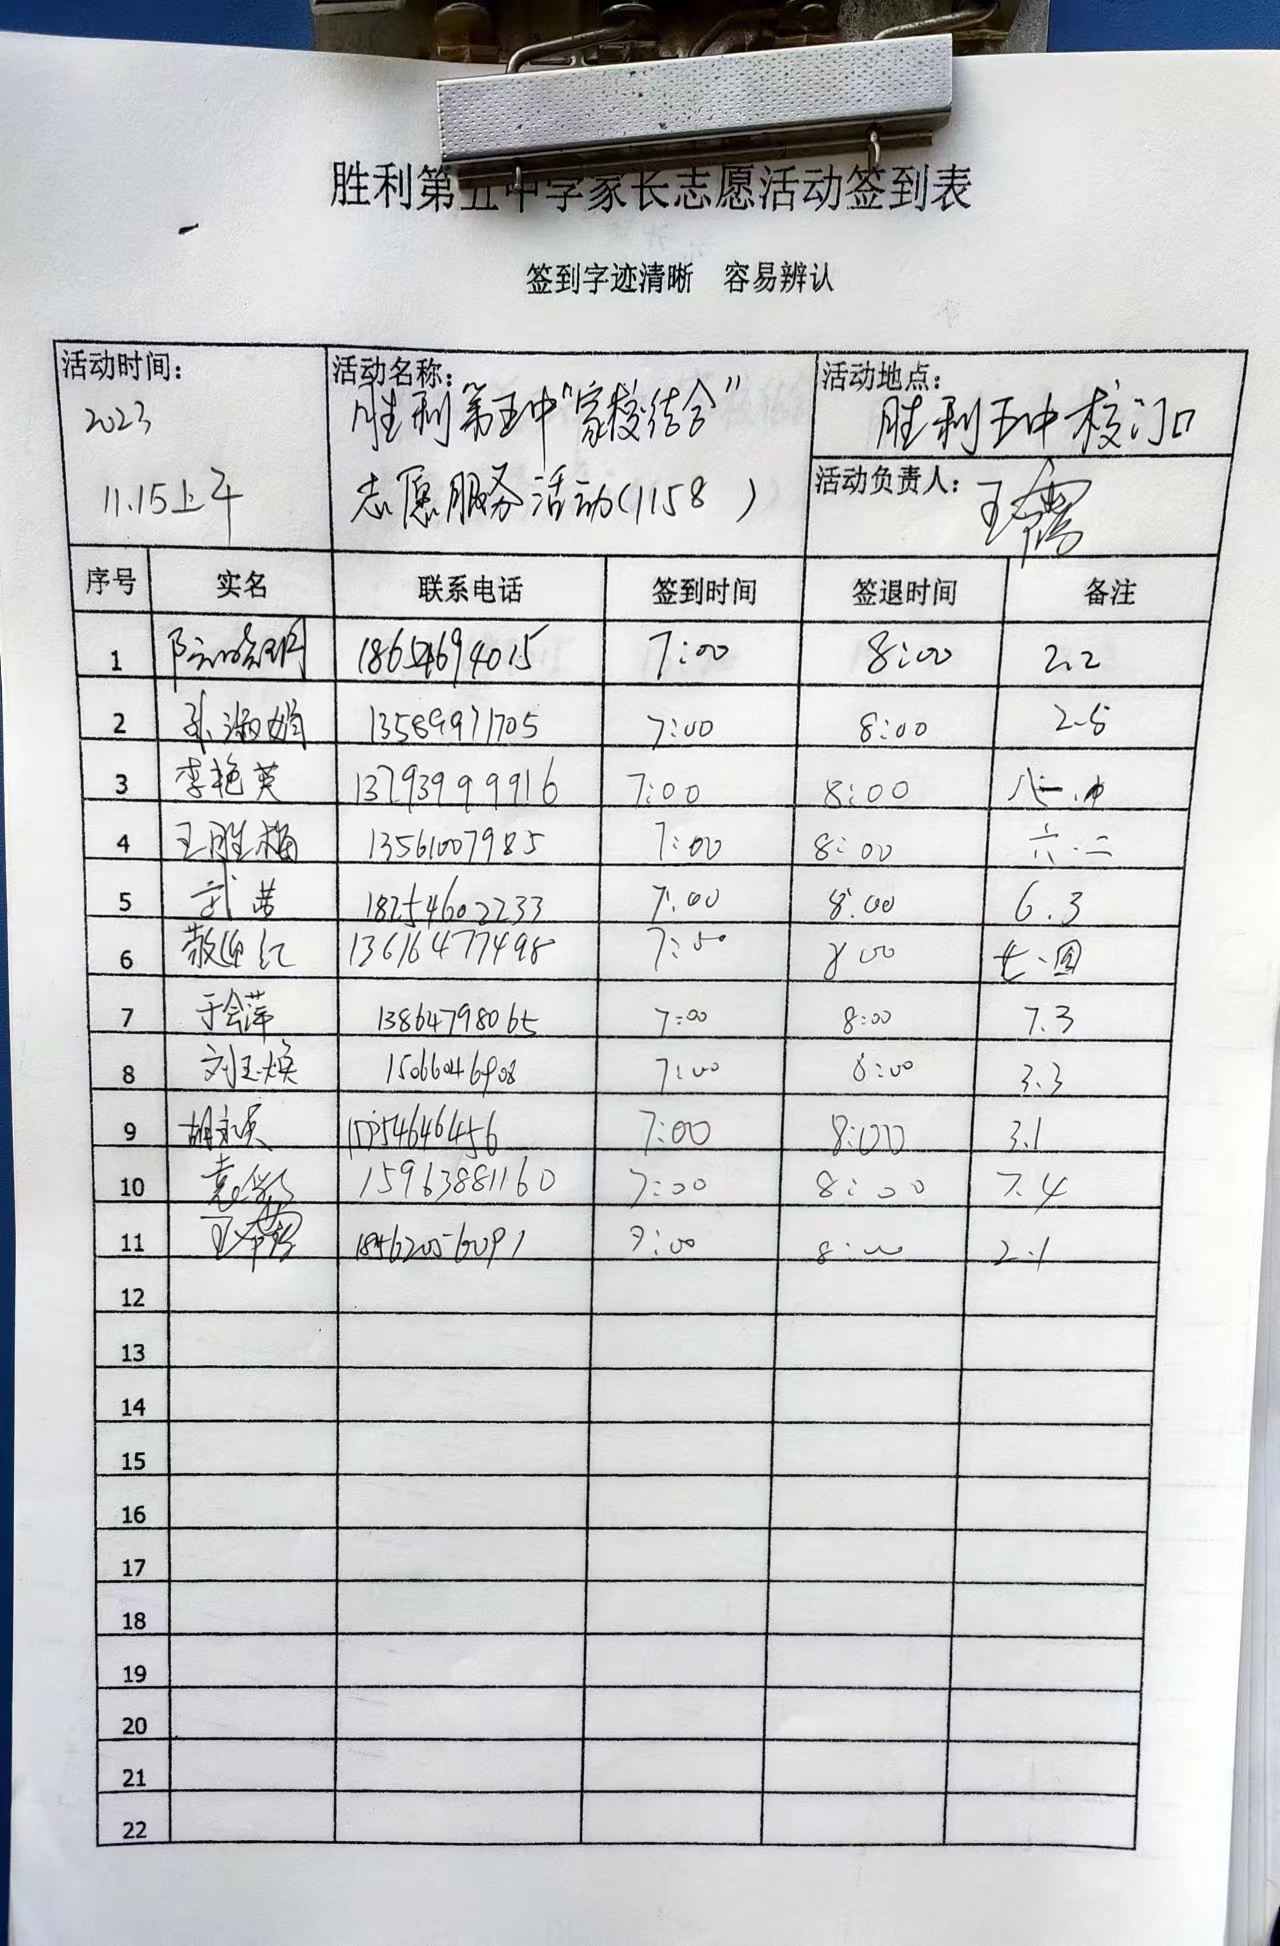 胜利第五中学家长志愿活动签到表
签到字迹清晰 容易辨认
活动时间： 2023 11.15上午
活动名称： 胜利第五中"家校结合" 志愿服务活动(1158 )
活动地点： 胜利五中校门口
活动负责人： 王
序号 实名 联系电话 签到时间 签退时间 备注
1 18654694015 7:00 8:00 2.2
2 孙淑娟 13589971705 7:00 8:00 2.5
3 李艳英 13793999916 7:00 8:00
4 王胜梅 13561007985 7:00 8:00 六.二
5 武 18254602233 7:00 8:00 6.3
6 红 13616477498 8:00 七.四
7 于会萍 13864798065 7:00 8:00 7.3
8 刘玉焕 15066046908 7:00 8:00 3.3
9 胡 7:00 8:00 3.1
10 袁 15963881160 7:00 8:00 7.4
11 王 8:00 2.1
12
13
14
15
16
17
18
19
20
21
22